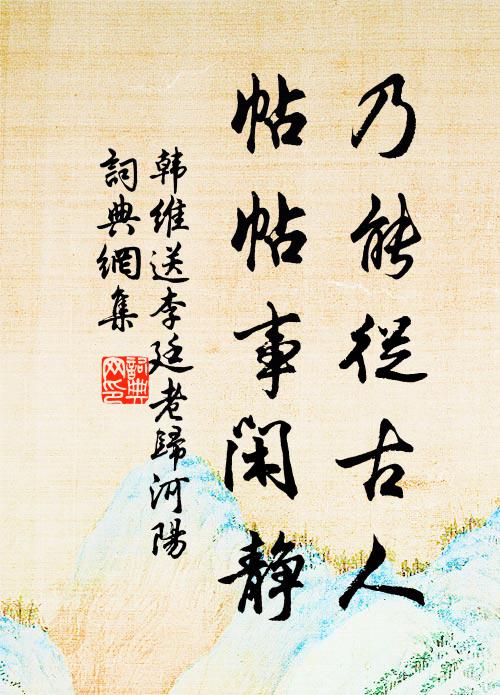 乃能從古人
帖帖事閑靜
韩維送李廷老歸河陽
詞典網集
詞典
网印